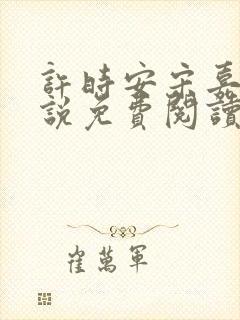 許時安宋嘉
說免費閱讀
崔萬軍